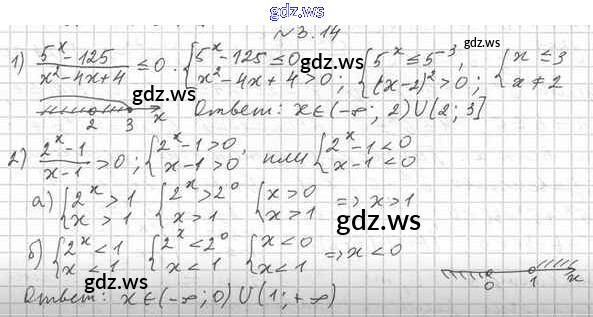 gdz.ws
№3.14
1) (5^x-125)/(x²-4x+4) ≤0. {5^x-125≤0 x²-4x+4>0; {5^x≤5^-3, (x-2)²>0; {x≤3 x≠2
gdz.ws
gdz.ws
2 3 x Ответ: x∈(-∞; 2)U(2; 3]
gdz.ws
2) (2^x-1)/(x-1) >0; {2^x-1>0, x-1>0 или {2^x-1<0 x-1<0
а) {2^x>1 x>1 {2^x>2^0 x>1 {x>0 x>1 => x>1
gdz.ws
б) {2^x<1 x<1 {2^x<2^0 x<1 {x<0 x<1 => x<0
0 1 x
Ответ: x∈(-∞;0)U(1;+∞)
gdz.ws